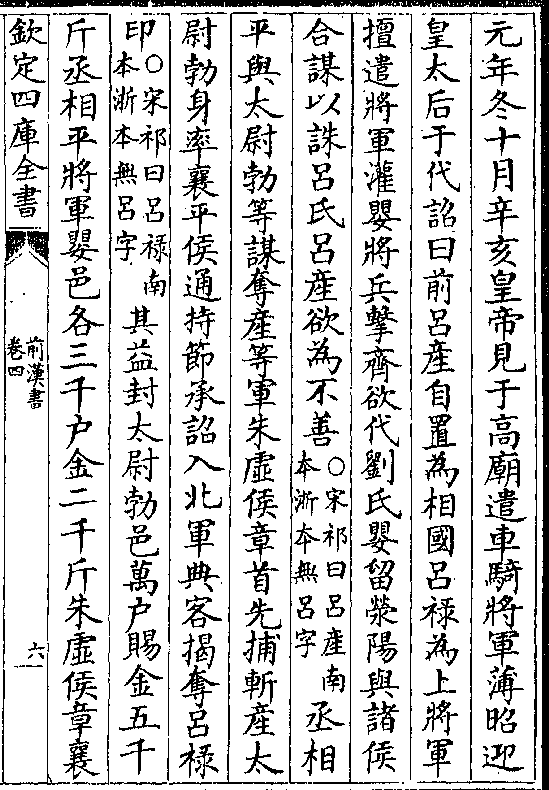 元年冬十月辛亥皇帝見于高廟遣車騎將軍薄昭迎
皇太后于代詔曰前呂產自置為相國呂祿為上將軍
擅遣將軍灌嬰將兵擊齊欲代劉氏嬰留滎陽與諸侯
合謀以誅呂氏呂產欲為不善○宋祁曰呂產南本浙本無呂字丞相
平與太尉勃等謀奪產等軍朱虛侯章首先捕斬產太
尉勃身率襄平侯通持節承詔入北軍典客揭奪呂祿
印○宋祁曰呂祿南本浙本無呂字其益封太尉勃邑萬户賜金五千
斤丞相平將軍嬰邑各三千户金二千斤朱虛侯章襄
欽定四庫全書
前漢書
卷四
六